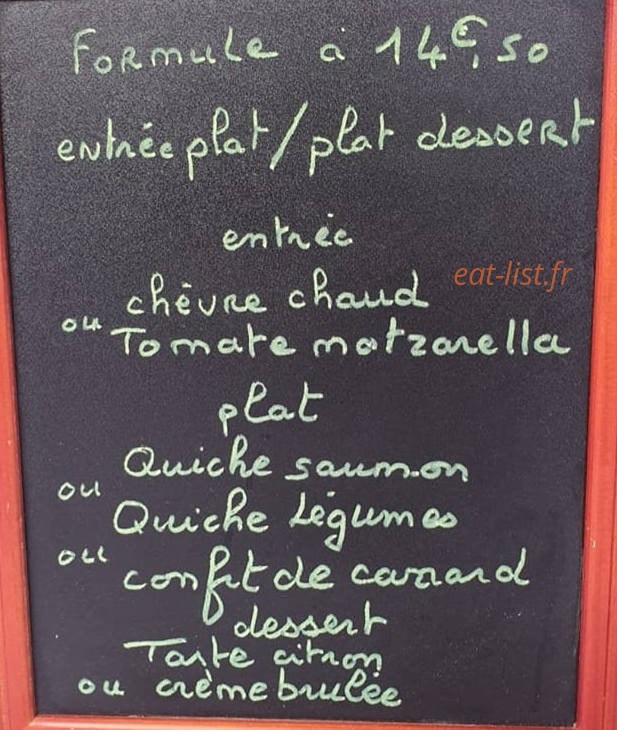 Formule à 14€,50
entrée plat/plat dessert
entrée
eat-list.fr
chèvre chaud
ou Tomate motzarella
plat
Quiche saumon
ou
Quiche Légumes
ou
confit de canard
dessert
Tarte citron
ou crème brulée